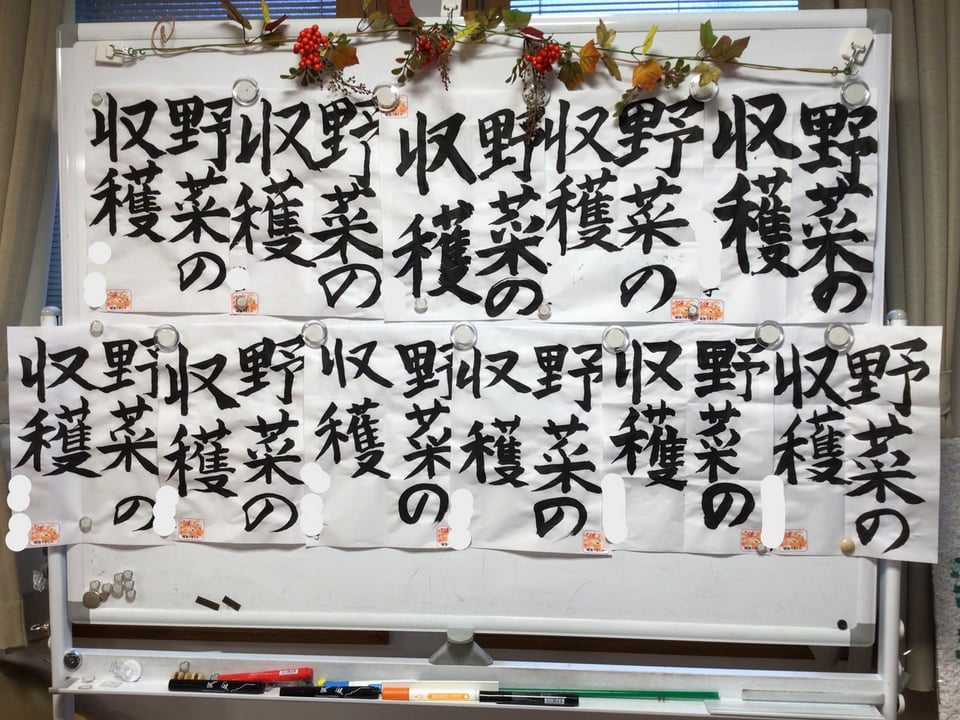 野菜の
収穫
野菜の
収穫
野菜の
収穫
野菜の
収穫
野菜の
収穫
野菜の
収穫
野菜の
収穫
野菜の
収穫
野菜の
収穫
野菜の
収穫
野菜の
収穫